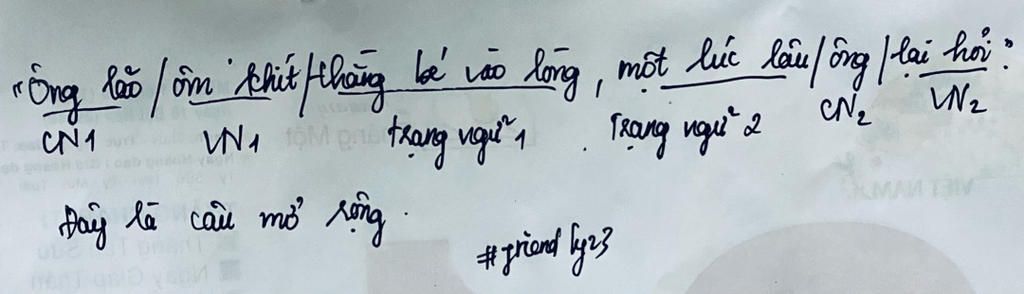 "Ông lão / ôm khít / thằng bé vào lòng, một lúc lâu / ông / lại hỏi:"
CN1 VN1 trạng ngữ 1 Trạng ngữ 2 CN2 VN2
Đây là câu mở rộng.
#friendly23